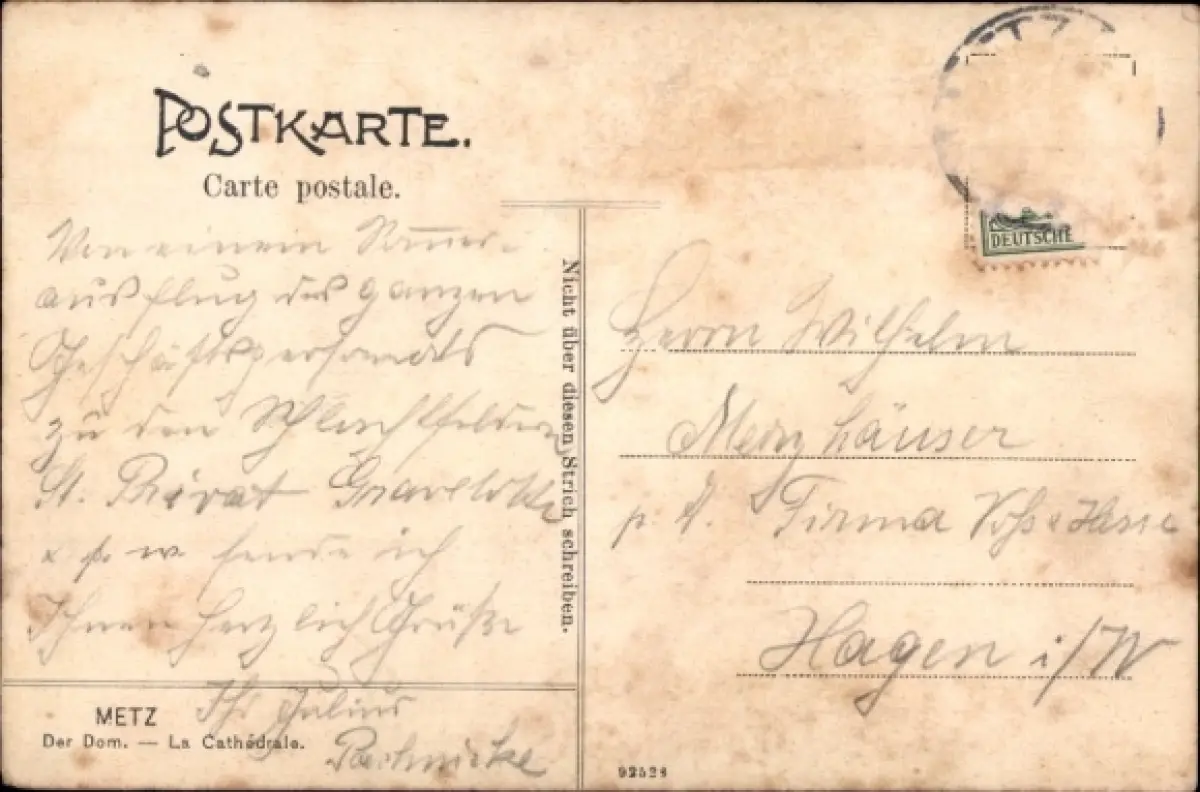 POSTKARTE.
Carte postale.
Von einem Sommer-
ausflug des ganzen
Geschäftspersonals
zu den Schlachtfeldern
St. Privat Gravelotte
u s w sende ich
Ihnen herzlich Grüße
Ihr Julius
METZ
Der Dom. — La Cathédrale.
Nicht über diesen Strich schreiben.
DEUTSCHE
Herrn Wilhelm
Merzhäuser
p. A. Firma
Hagen i/W
92528